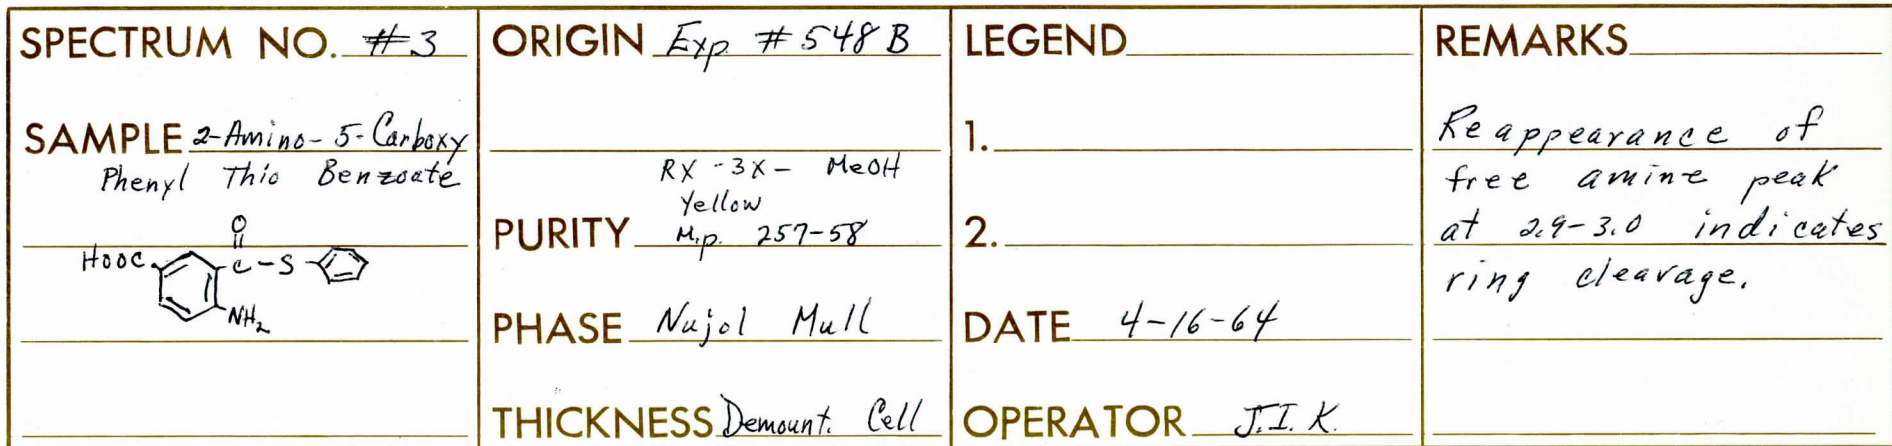 SPECTRUM NO. #3
SAMPLE 2-Amino-5-Carboxy
Phenyl Thio Benzoate
O
HOOC
C-S
NH2
ORIGIN Exp #548 B
RX -3X- MeOH
Yellow
PURITY M.p. 257-58
PHASE Nujol Mull
THICKNESS Demount. Cell
LEGEND
1.
2.
DATE 4-16-64
OPERATOR J.I.K.
REMARKS
Reappearance of
free amine peak
at 2.9-3.0 indicates
ring cleavage.